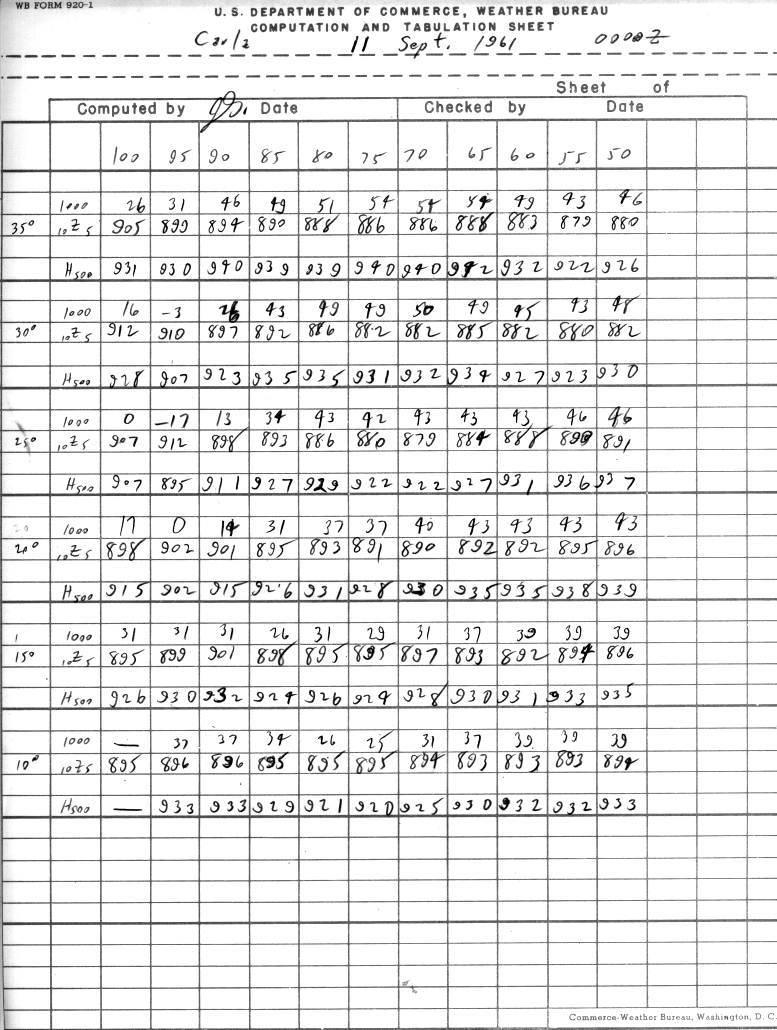 WB FORM 920-1
U. S. DEPARTMENT OF COMMERCE, WEATHER BUREAU
COMPUTATION AND TABULATION SHEET
Carla 11 Sept. 1961 0000Z
Sheet of
Computed by Date Checked by Date
100 95 90 85 80 75 70 65 60 55 50
1000 26 31 46 49 51 54 54 54 49 43 46
35° 10Z5 905 899 894 890 888 886 886 888 883 879 880
H500 931 930 940 939 939 940 940 942 932 922 926
1000 16 -3 26 43 49 49 50 49 45 43 48
30° 10Z5 912 910 897 892 886 882 882 885 882 880 882
H500 928 907 923 935 935 931 932 934 927 923 930
1000 0 -17 13 34 43 42 43 43 43 46 46
25° 10Z5 907 912 898 893 886 880 879 884 888 890 891
H500 907 895 911 927 929 922 922 927 931 936 937
1000 17 0 14 31 37 37 40 43 43 43 43
20° 10Z5 898 902 901 895 893 891 890 892 892 895 896
H500 915 902 915 926 931 928 930 935 935 938 939
1000 31 31 31 26 31 29 31 37 39 39 39
15° 10Z5 895 899 901 898 895 895 897 893 892 894 896
H500 926 930 932 924 926 924 928 930 931 933 935
1000 — 37 37 34 26 25 31 37 39 39 39
10° 10Z5 895 896 896 895 895 895 894 893 893 893 894
H500 — 933 933 929 921 920 925 930 932 932 933
Commerce-Weather Bureau, Washington, D. C.